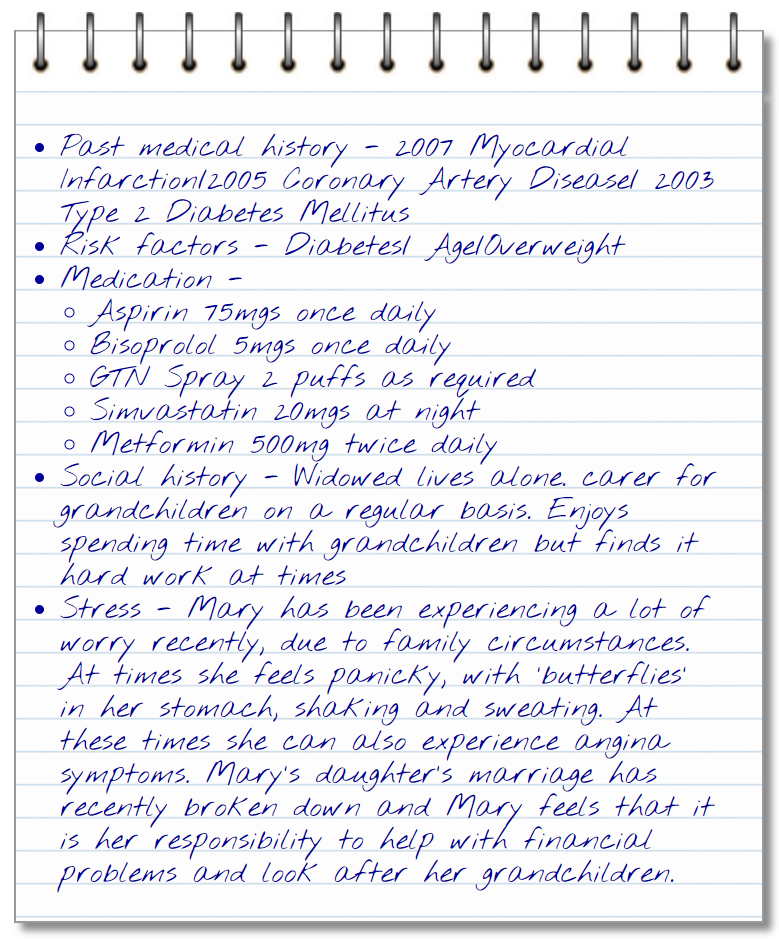 • Past medical history - 2007 Myocardial
Infarction|2005 Coronary Artery Disease| 2003
Type 2 Diabetes Mellitus
• Risk factors - Diabetes| Age|Overweight
• Medication -
○ Aspirin 75mgs once daily
○ Bisoprolol 5mgs once daily
○ GTN Spray 2 puffs as required
○ Simvastatin 20mgs at night
○ Metformin 500mg twice daily
• Social history - Widowed lives alone. carer for
grandchildren on a regular basis. Enjoys
spending time with grandchildren but finds it
hard work at times
• Stress - Mary has been experiencing a lot of
worry recently, due to family circumstances.
At times she feels panicky, with 'butterflies'
in her stomach, shaking and sweating. At
these times she can also experience angina
symptoms. Mary's daughter's marriage has
recently broken down and Mary feels that it
is her responsibility to help with financial
problems and look after her grandchildren.